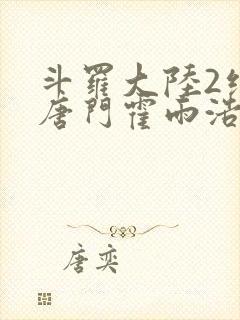 斗羅大陸2
唐門霍雨浩
唐奕